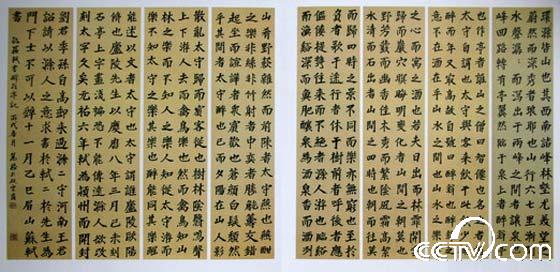 環滁皆山也其西南諸峰林壑尤美望之
蔚然而深秀者琅琊也山行六七里漸聞
水聲潺潺而瀉出于兩峰之間者讓泉也
峰回路轉有亭翼然臨于泉上者醉翁亭
也作亭者誰山之僧智僊也名之者誰
太守自謂也太守與客來飲于此飲少輒
醉而年又最高故自號曰醉翁也醉翁之
意不在酒在乎山水之間也山水之樂得
之心而寓之酒也若夫日出而林霏開雲
歸而巖穴暝晦明變化者山間之朝暮也
野芳發而幽香佳木秀而繁陰風霜高潔
水清而石出者山間之四時也朝而往暮
而歸四時之景不同而樂亦無窮也至於
負者歌于塗行者休于樹前者呼後者應
傴僂提攜往來而不絕者滁人遊也臨溪
而漁溪深而魚肥釀泉為酒泉香而酒洌
山肴野蔌雜然而前陳者太守宴也宴酣
之樂非絲非竹射者中弈者勝觥籌交錯
起坐而諠譁者眾賓歡也蒼顏白髮頹然
其間者太守醉也已而夕陽在山人影
散亂太守歸而賓客從也樹林陰翳鳴聲
上下遊人去而禽鳥樂也然而禽鳥知山
林之樂而不知人之樂人知從太守遊而
樂而不知太守之樂其樂也醉能同其樂醒
能述以文者太守也太守謂誰廬陵歐陽
脩也廬陵先生以慶曆八年三月己未刻
石亭上字畫淺褊恐不能傳遠滁人欲改
刻大字久矣元祐六年軾為潁州而開封
劉君季孫自高郵來過滁滁守河南王君
詔請以滁人之意求書於軾軾於先生為
門下士不可以辭十一月乙巳眉山蘇軾
書
CCTV.com